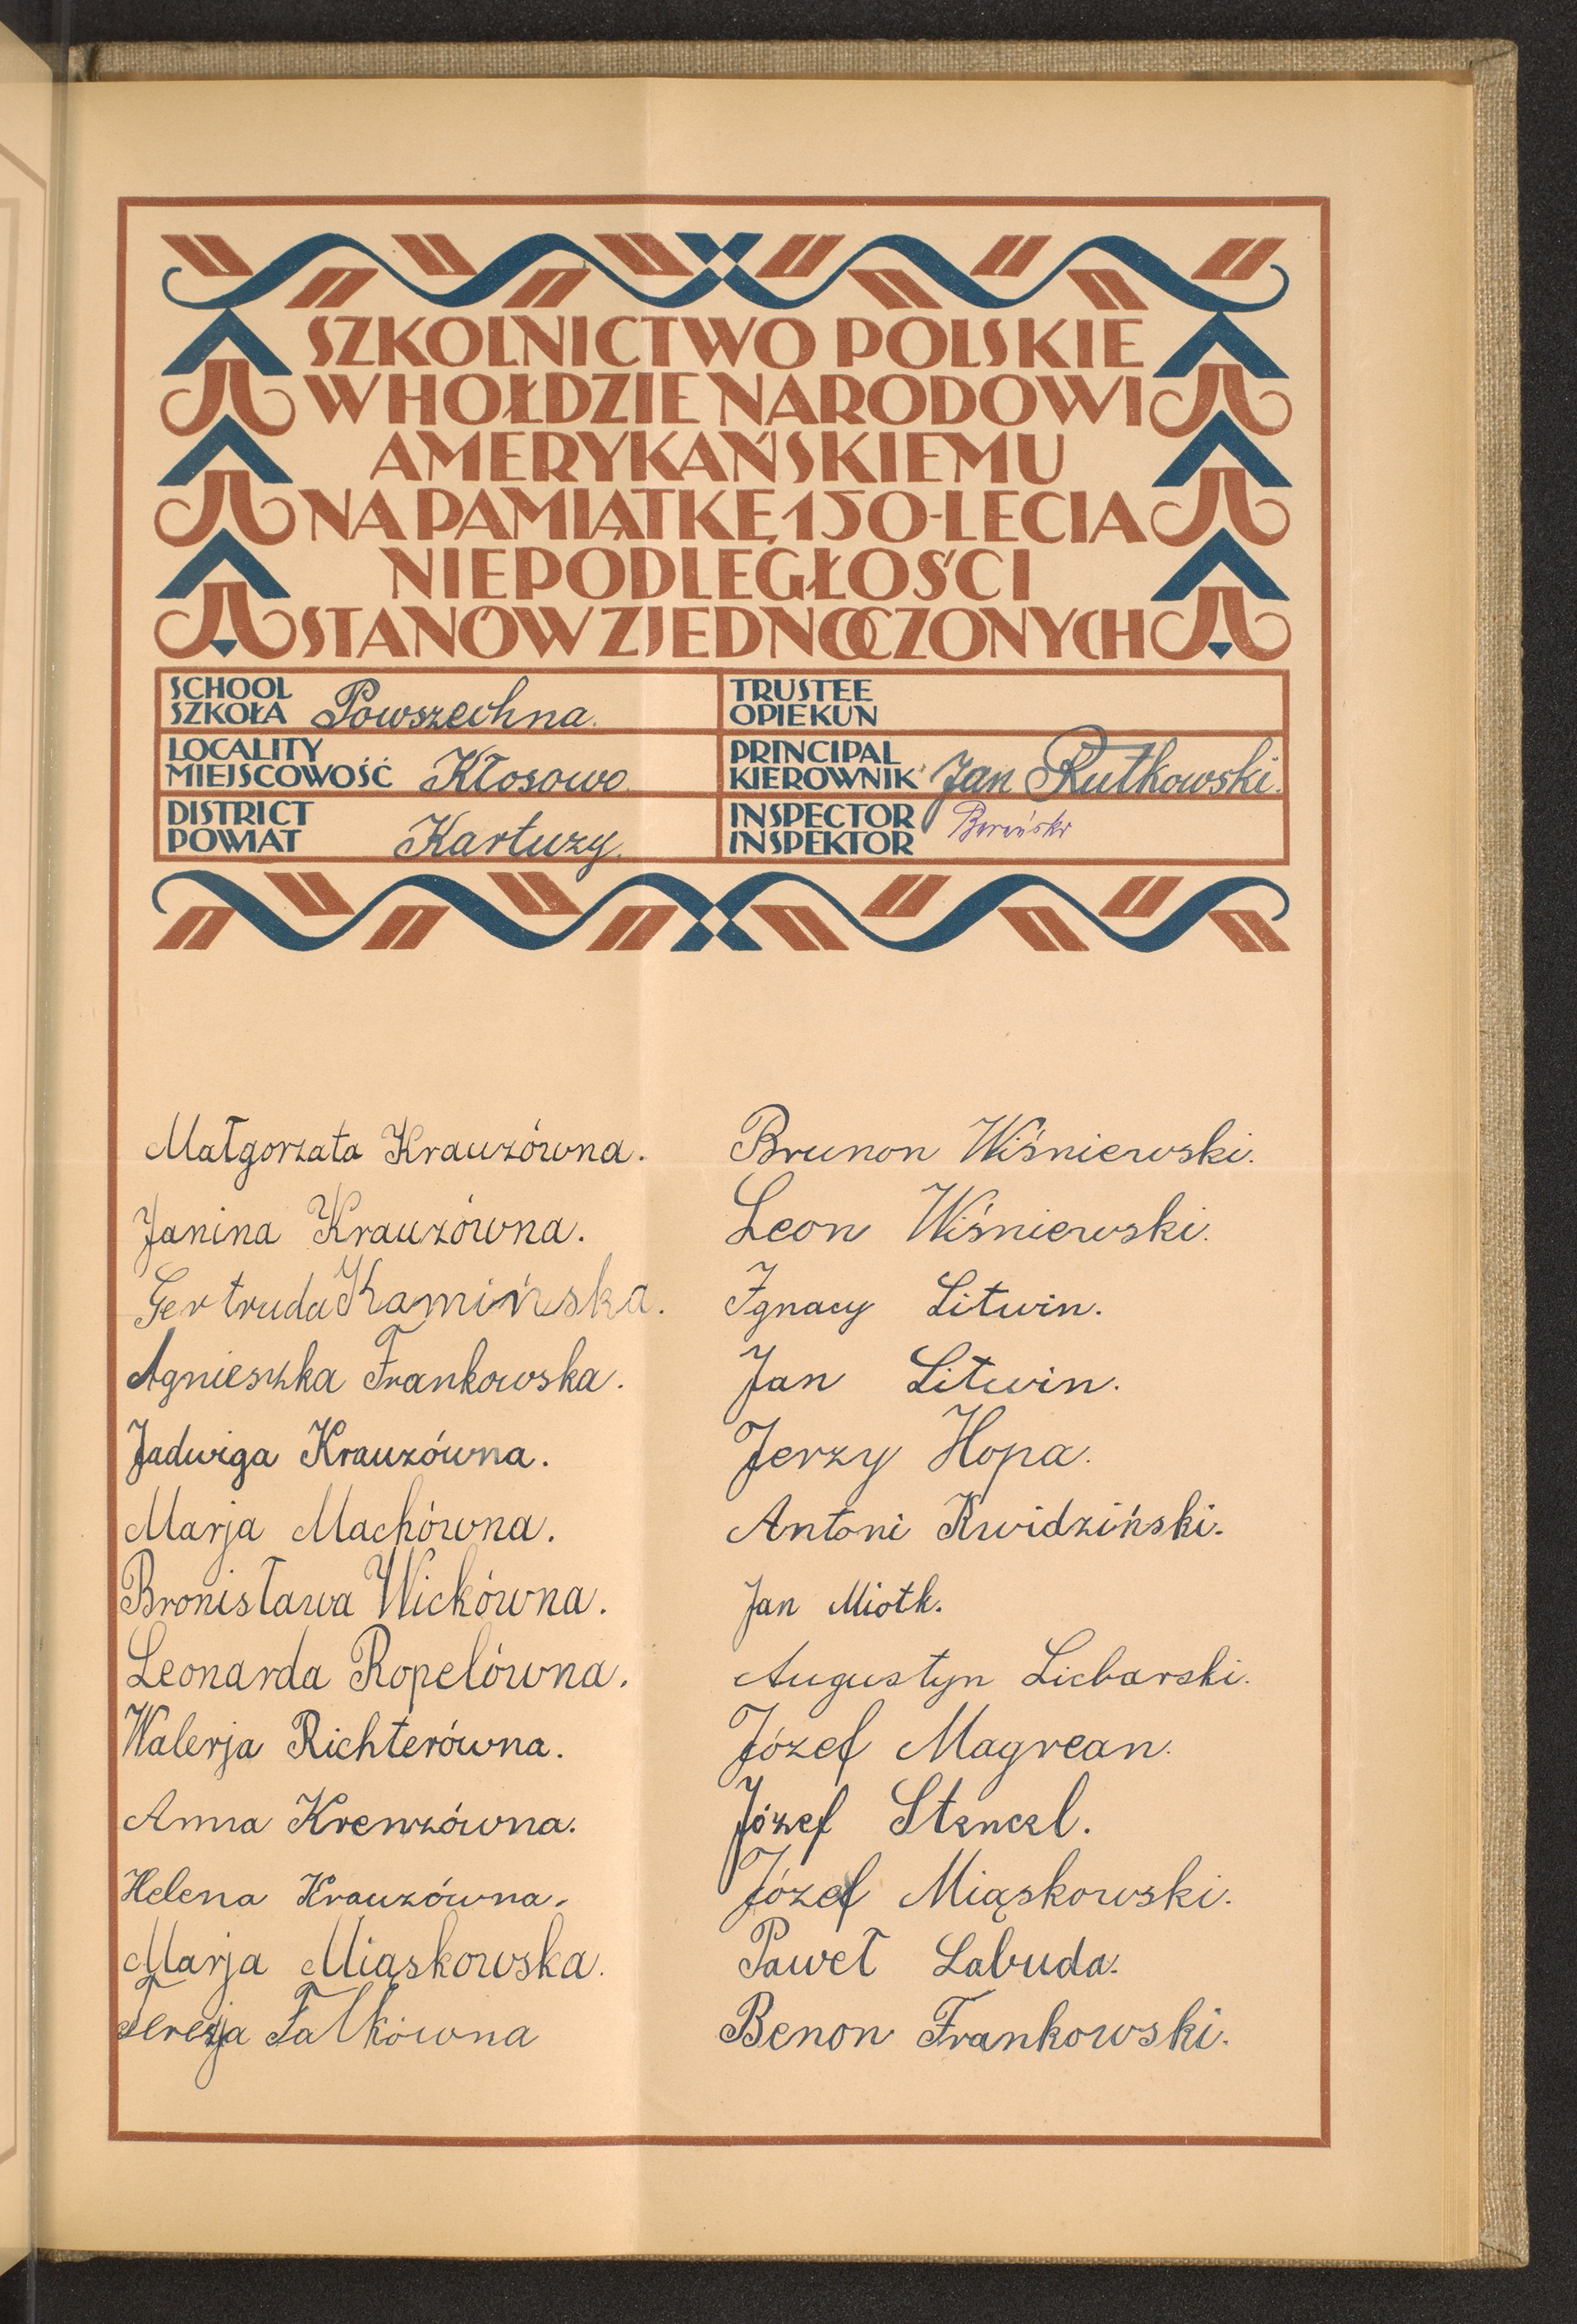 SZKOLNICTWO POLSKIE
W HOŁDZIE NARODOWI
AMERYKAŃSKIEMU
NA PAMIĄTKĘ 150-LECIA
NIEPODLEGŁOŚCI
STANÓW ZJEDNOCZONYCH
SCHOOL
SZKOŁA Powszechna.
TRUSTEE
OPIEKUN
LOCALITY
MIEJSCOWOŚĆ Kłosowo
PRINCIPAL
KIEROWNIK Jan Rutkowski.
DISTRICT
POWIAT Kartuzy.
INSPECTOR
INSPEKTOR
Małgorzata Krauzówna.
Janina Krauzówna.
Gertruda Kamińska.
Agnieszka Frankowska.
Jadwiga Krauzówna.
Marja Machówna.
Bronisława Wickówna.
Leonarda Ropelówna.
Walerja Richterówna.
Anna Krenzówna.
Helena Krauzówna.
Marja Miąskowska.
Terezja Falkówna
Brunon Wiśniewski.
Leon Wiśniewski.
Ignacy Litwin.
Jan Litwin.
Jerzy Hopa.
Antoni Kwidziński.
Jan Miotk.
Augustyn Licbarski.
Józef Magrean.
Józef Stencel.
Józef Miąskowski.
Paweł Labuda.
Benon Frankowski.